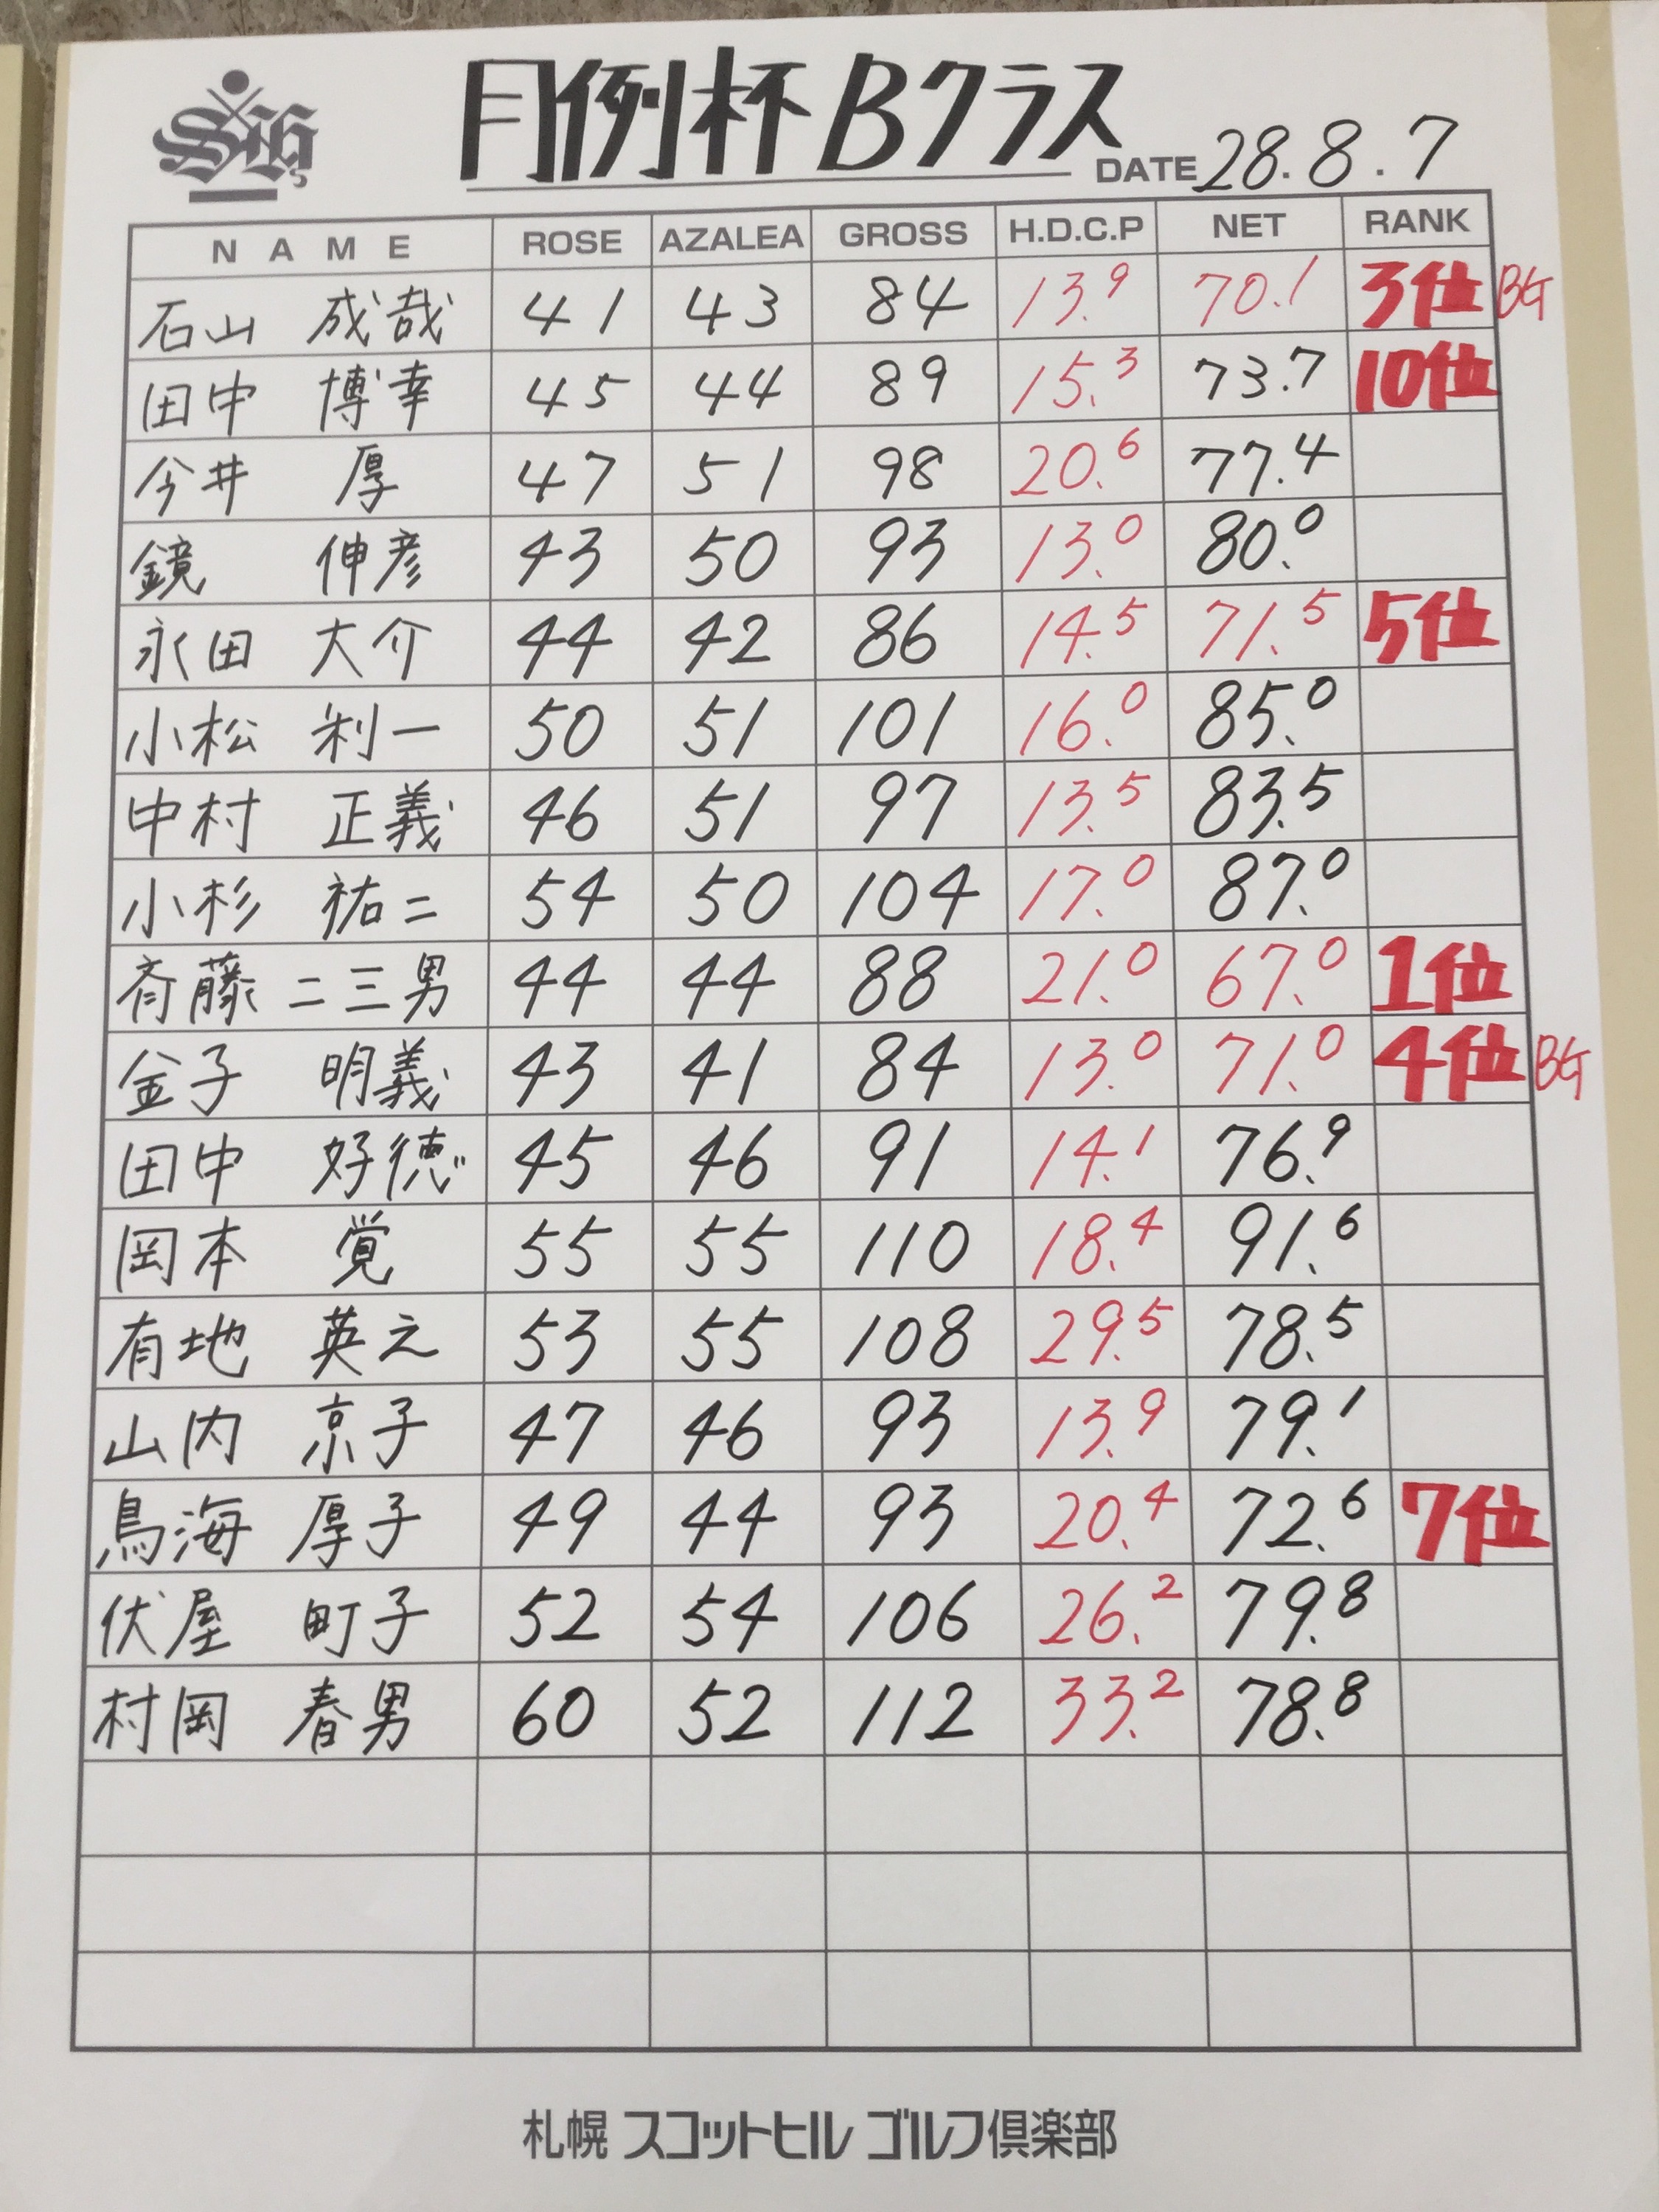 月例杯 Bクラス
DATE 28.8.7
NAME ROSE AZALEA GROSS H.D.C.P NET RANK
石山 成哉 41 43 84 13.9 70.1 3位 BG
田中 博幸 45 44 89 15.3 73.7 10位
今井 厚 47 51 98 20.6 77.4
鏡 伸彦 43 50 93 13.0 80.0
永田 大介 44 42 86 14.5 71.5 5位
小松 利一 50 51 101 16.0 85.0
中村 正義 46 51 97 13.5 83.5
小杉 祐二 54 50 104 17.0 87.0
斉藤 二三男 44 44 88 21.0 67.0 1位
金子 明義 43 41 84 13.0 71.0 4位 BG
田中 好徳 45 46 91 14.1 76.9
岡本 覚 55 55 110 18.4 91.6
有地 英之 53 55 108 29.5 78.5
山内 京子 47 46 93 13.9 79.1
鳥海 厚子 49 44 93 20.4 72.6 7位
伏屋 町子 52 54 106 26.2 79.8
村岡 春男 60 52 112 33.2 78.8
札幌 スコットヒル ゴルフ倶楽部